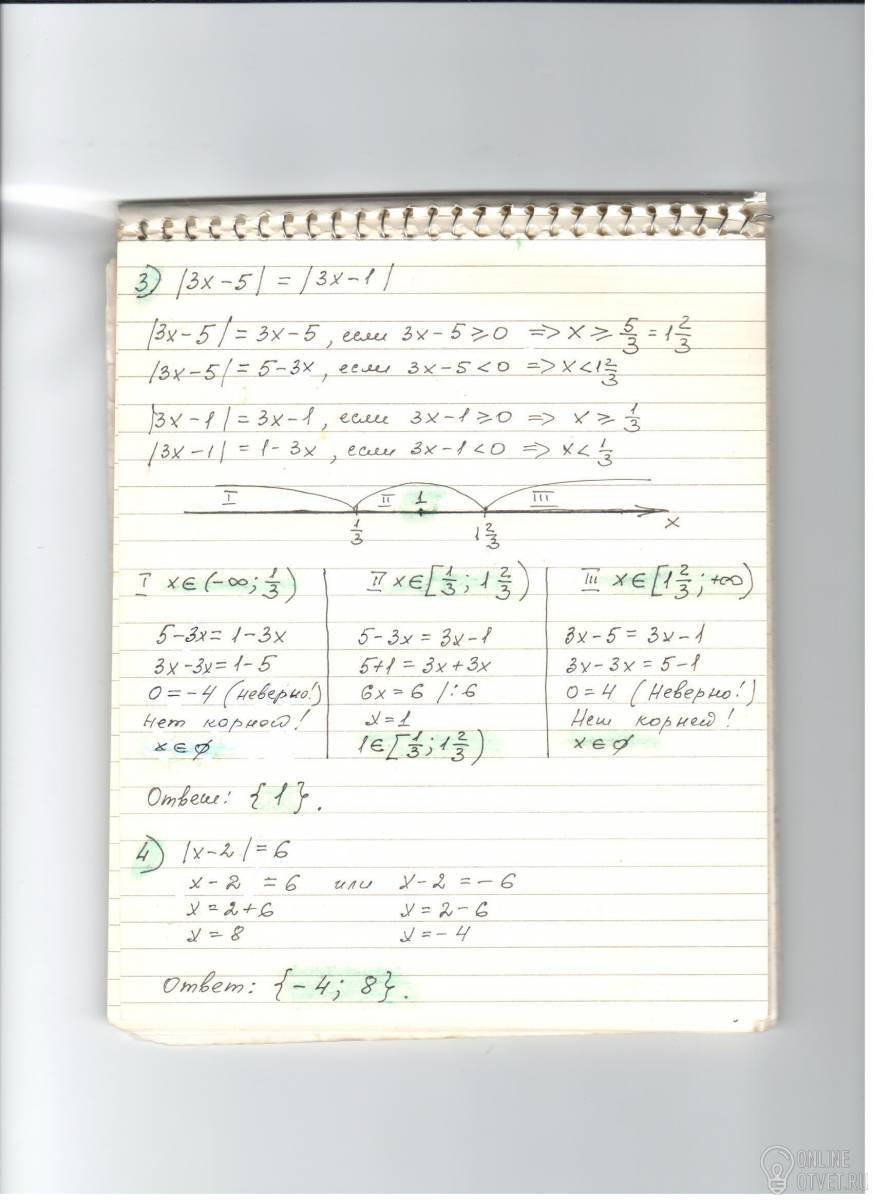 3) |3x-5| = |3x-1|
|3x-5| = 3x-5, если 3x-5≥0 => x ≥ 5/3 = 1 2/3
|3x-5| = 5-3x, если 3x-5<0 => x<1 2/3
|3x-1| = 3x-1, если 3x-1≥0 => x ≥ 1/3
|3x-1| = 1-3x, если 3x-1<0 => x< 1/3
I II 1 III
1/3 1 2/3 x
I x∈(-∞; 1/3)
5-3x=1-3x
3x-3x=1-5
0=-4 (неверно!)
Нет корней!
x∈∅
II x∈[1/3; 1 2/3)
5-3x = 3x-1
5+1 = 3x+3x
6x=6 /:6
x=1
1∈[1/3; 1 2/3)
III x∈[1 2/3; +∞)
3x-5=3x-1
3x-3x=5-1
0=4 (Неверно!)
Нет корней!
x∈∅
Ответ: {1}.
4) |x-2|=6
x-2 =6 или x-2=-6
x=2+6 x=2-6
x=8 x=-4
Ответ: {-4; 8}.
ONLINE
OTVET.RU